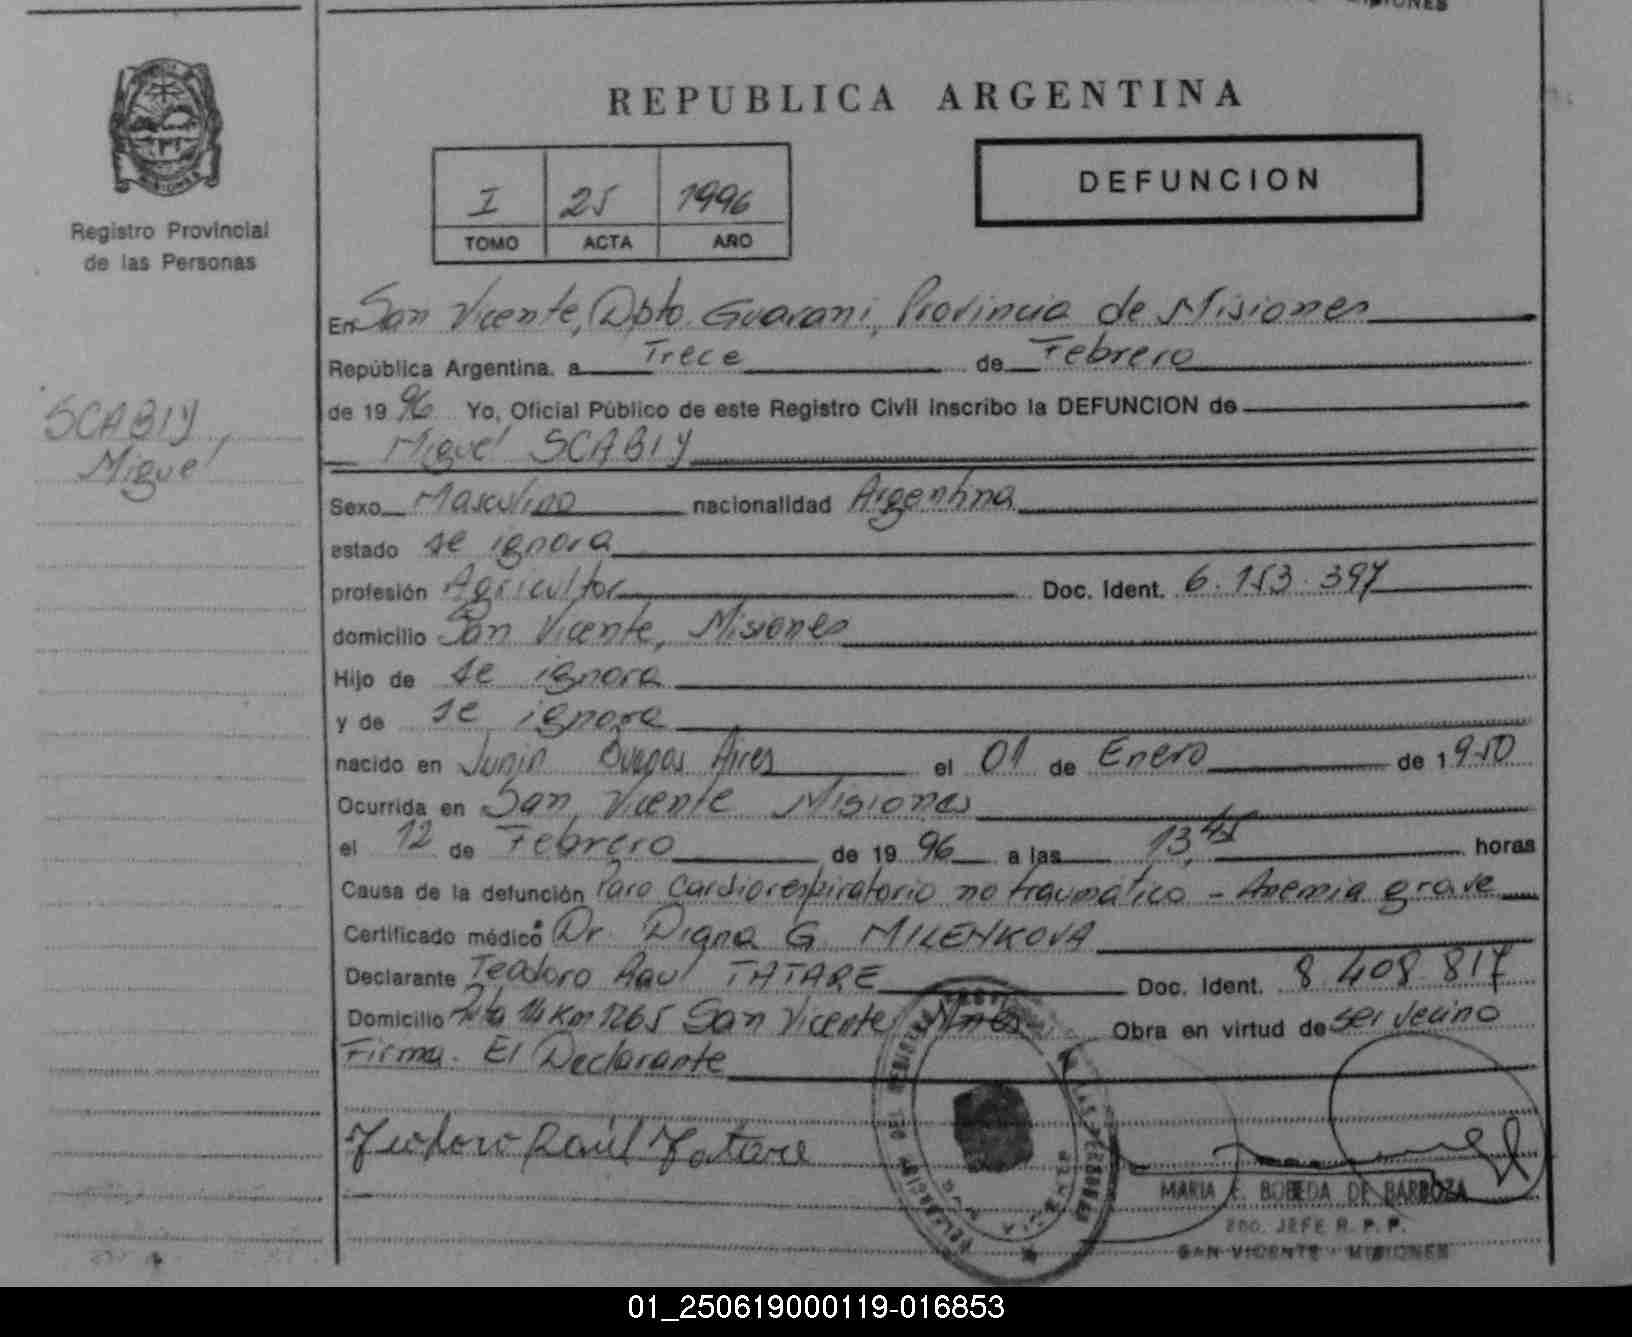 REPUBLICA ARGENTINA
DEFUNCION
I 25 1996
TOMO ACTA AÑO
MISIONES
Registro Provincial
de las Personas
SCABIY,
Miguel
En San Vicente, Dpto. Guarani, Provincia de Misiones
República Argentina, a Trece de Febrero
de 19 96 Yo, Oficial Público de este Registro Civil Inscribo la DEFUNCION de
Miguel SCABIY
Sexo Masculino nacionalidad Argentina
estado se ignora
profesión Agricultor Doc. Ident. 6.153.397
domicilio San Vicente, Misiones
Hijo de se ignora
y de se ignora
nacido en Junin Buenos Aires el 01 de Enero de 1950
Ocurrida en San Vicente Misiones
el 12 de Febrero de 19 96 a las 13,45 horas
Causa de la defunción Paro Cardiorespiratorio no traumático - Anemia grave
Certificado médico Dr. Digna G MILENKOVA
Declarante Teodoro Raul TATARE Doc. Ident. 8.408.817
Domicilio Ruta 14 Km 1265 San Vicente Mnes Obra en virtud de ser vecino
Firma. El Declarante
Teodoro Raúl Tatare
MARIA E. BOBEDA DE BARBOZA
2DO. JEFE R. P. P.
SAN VICENTE - MISIONES
01_250619000119-016853